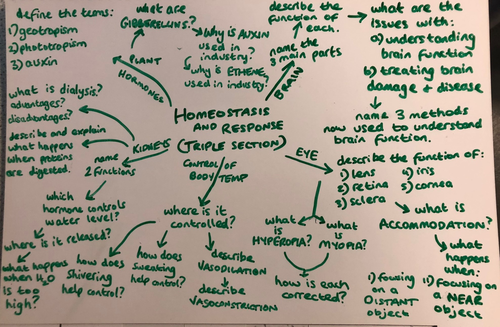 define the terms:
1) geotropism
2) phototropism
3) auxin
what are
GIBBERELLINS?
Why is AUXIN
used in
industry?
why is ETHENE
used in industry?
PLANT
HORMONES
describe the
function of
each.
name the
3 main parts
BRAIN
what are the
issues with:
a) understanding
brain function
b) treating brain
damage & disease
name 3 methods
now used to understand
brain function.
what is dialysis?
advantages?
disadvantages?
describe and explain
what happens
when proteins
are digested.
KIDNEYS
name
2 functions
HOMEOSTASIS
AND RESPONSE
(TRIPLE SECTION)
CONTROL OF
BODY TEMP
EYE
describe the function of:
1) lens
2) retina
3) sclera
4) iris
5) cornea
what is
ACCOMMODATION?
what
happens
when:
1) focusing
on a
DISTANT
object
1) focusing
on a NEAR
object
which
hormone controls
water level?
where is it released?
what happens
when H2O
is too
high?
where is it
controlled?
how does
shivering
help control?
how does
sweating
help control?
describe
VASODILATION
describe
VASOCONSTRICTION
what is
HYPEROPIA?
what
is
MYOPIA?
how is each
corrected?